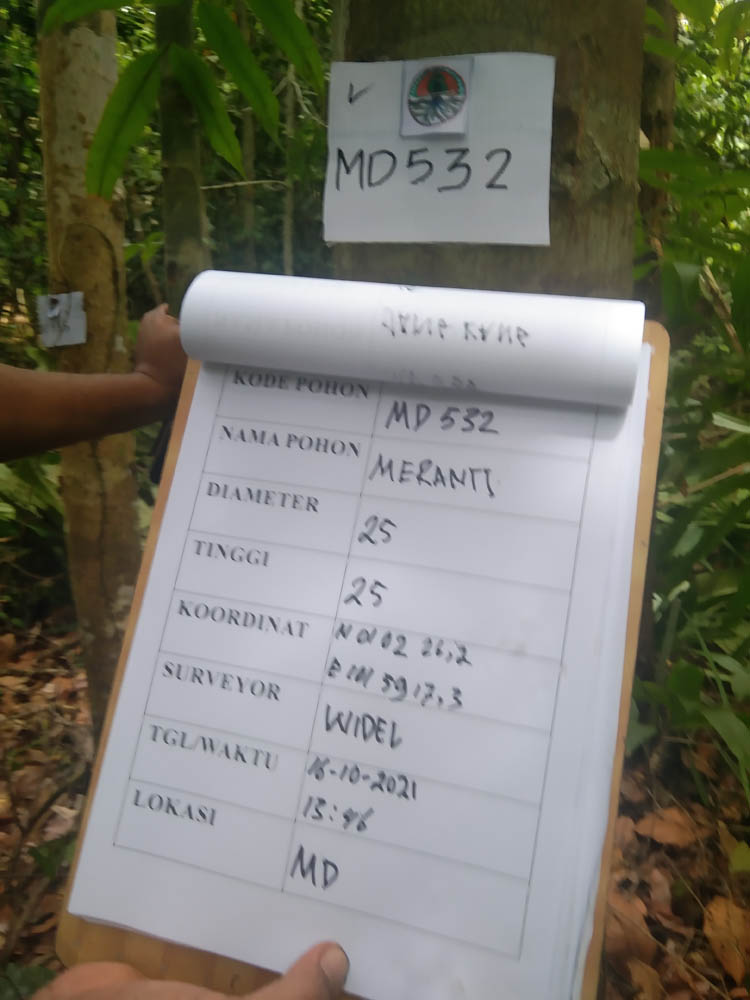 MD532
KODE POHON MD 532
NAMA POHON MERANTI
DIAMETER 25
TINGGI 25
KOORDINAT N 01 02 26,2
E 111 59 17,3
SURVEYOR WIDEL
TGL/WAKTU 16-10-2021
13:46
LOKASI MD